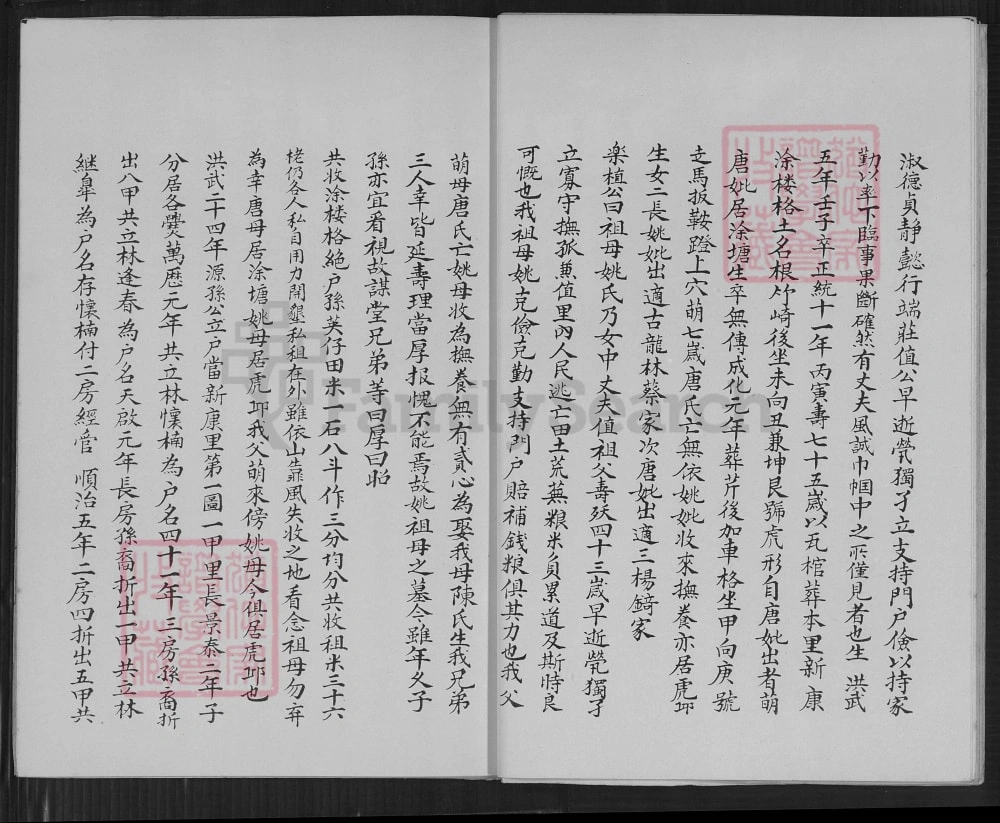 淑德貞靜懿行端莊值公早逝煢獨孑立支持門户儉以持家
勤以率下臨事果斷確然有丈夫風誠巾帼中之所僅見者也生 洪武
五年壬子卒正統十一年丙寅壽七十五歲以瓦棺葬本里新康
涂楼格土名根竹崎後坐未向丑兼坤艮號虎形自唐妣出者萌
唐妣居涂塘生卒無傳成化元年葬芹後加車格坐甲向庚號
走馬扳鞍蹬上穴萌七歲唐氏亡無依姚妣收來撫養亦居虎邱
生女二長姚妣出適古龍林蔡家次唐妣出適三楊錡家
楽植公曰祖母姚氏乃女中丈夫值祖父壽殀四十三歲早逝煢獨孑
立寡守撫孤兼值里內人民逃亡田土荒蕪粮米負累道及斯時良
可慨也我祖母姚克儉克勤支持門户賠補錢粮俱其力也我父
萌母唐氏亡姚母收為撫養無有貳心為娶我母陳氏生我兄弟
三人幸皆延壽理當厚报愧不能焉故姚祖母之墓令雖年久子
孫亦宜看視故謀堂兄弟等曰厚曰昭
共收涂楼格絶户孫英仔田米一石八斗作三分均分共收租米三十六
栳仍各人私自用力開懇私租在外雖依山靠風失收之地看念祖母勿弃
為幸唐母居涂塘姚母居虎邱我父萌來傍姚母今俱居虎邱也
洪武二十四年源孫公立户當新康里第一圖一甲里長景泰二年子
分居各爨萬歷元年共立林懷楠為户名四十一年三房孫裔折
出八甲共立林逢春為户名天啟元年長房孫裔折出一甲共立林
継臯為户名存懷楠付二房經管 順治五年二房四折出五甲共
FamilySearch